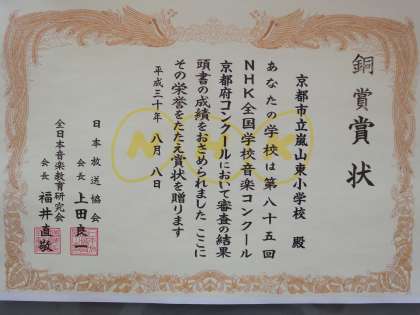 銅賞賞状
京都市立嵐山東小学校 殿
あなたの学校は第八十五回
NHK全国学校音楽コンクール
京都府コンクールにおいて審査の結果
頭書の成績をおさめられました ここに
その栄誉をたたえ賞状を贈ります
平成三十年 八月 八日
日本放送協会
会長 上田良一
全日本音楽教育研究会
会長 福井直敬
NHK